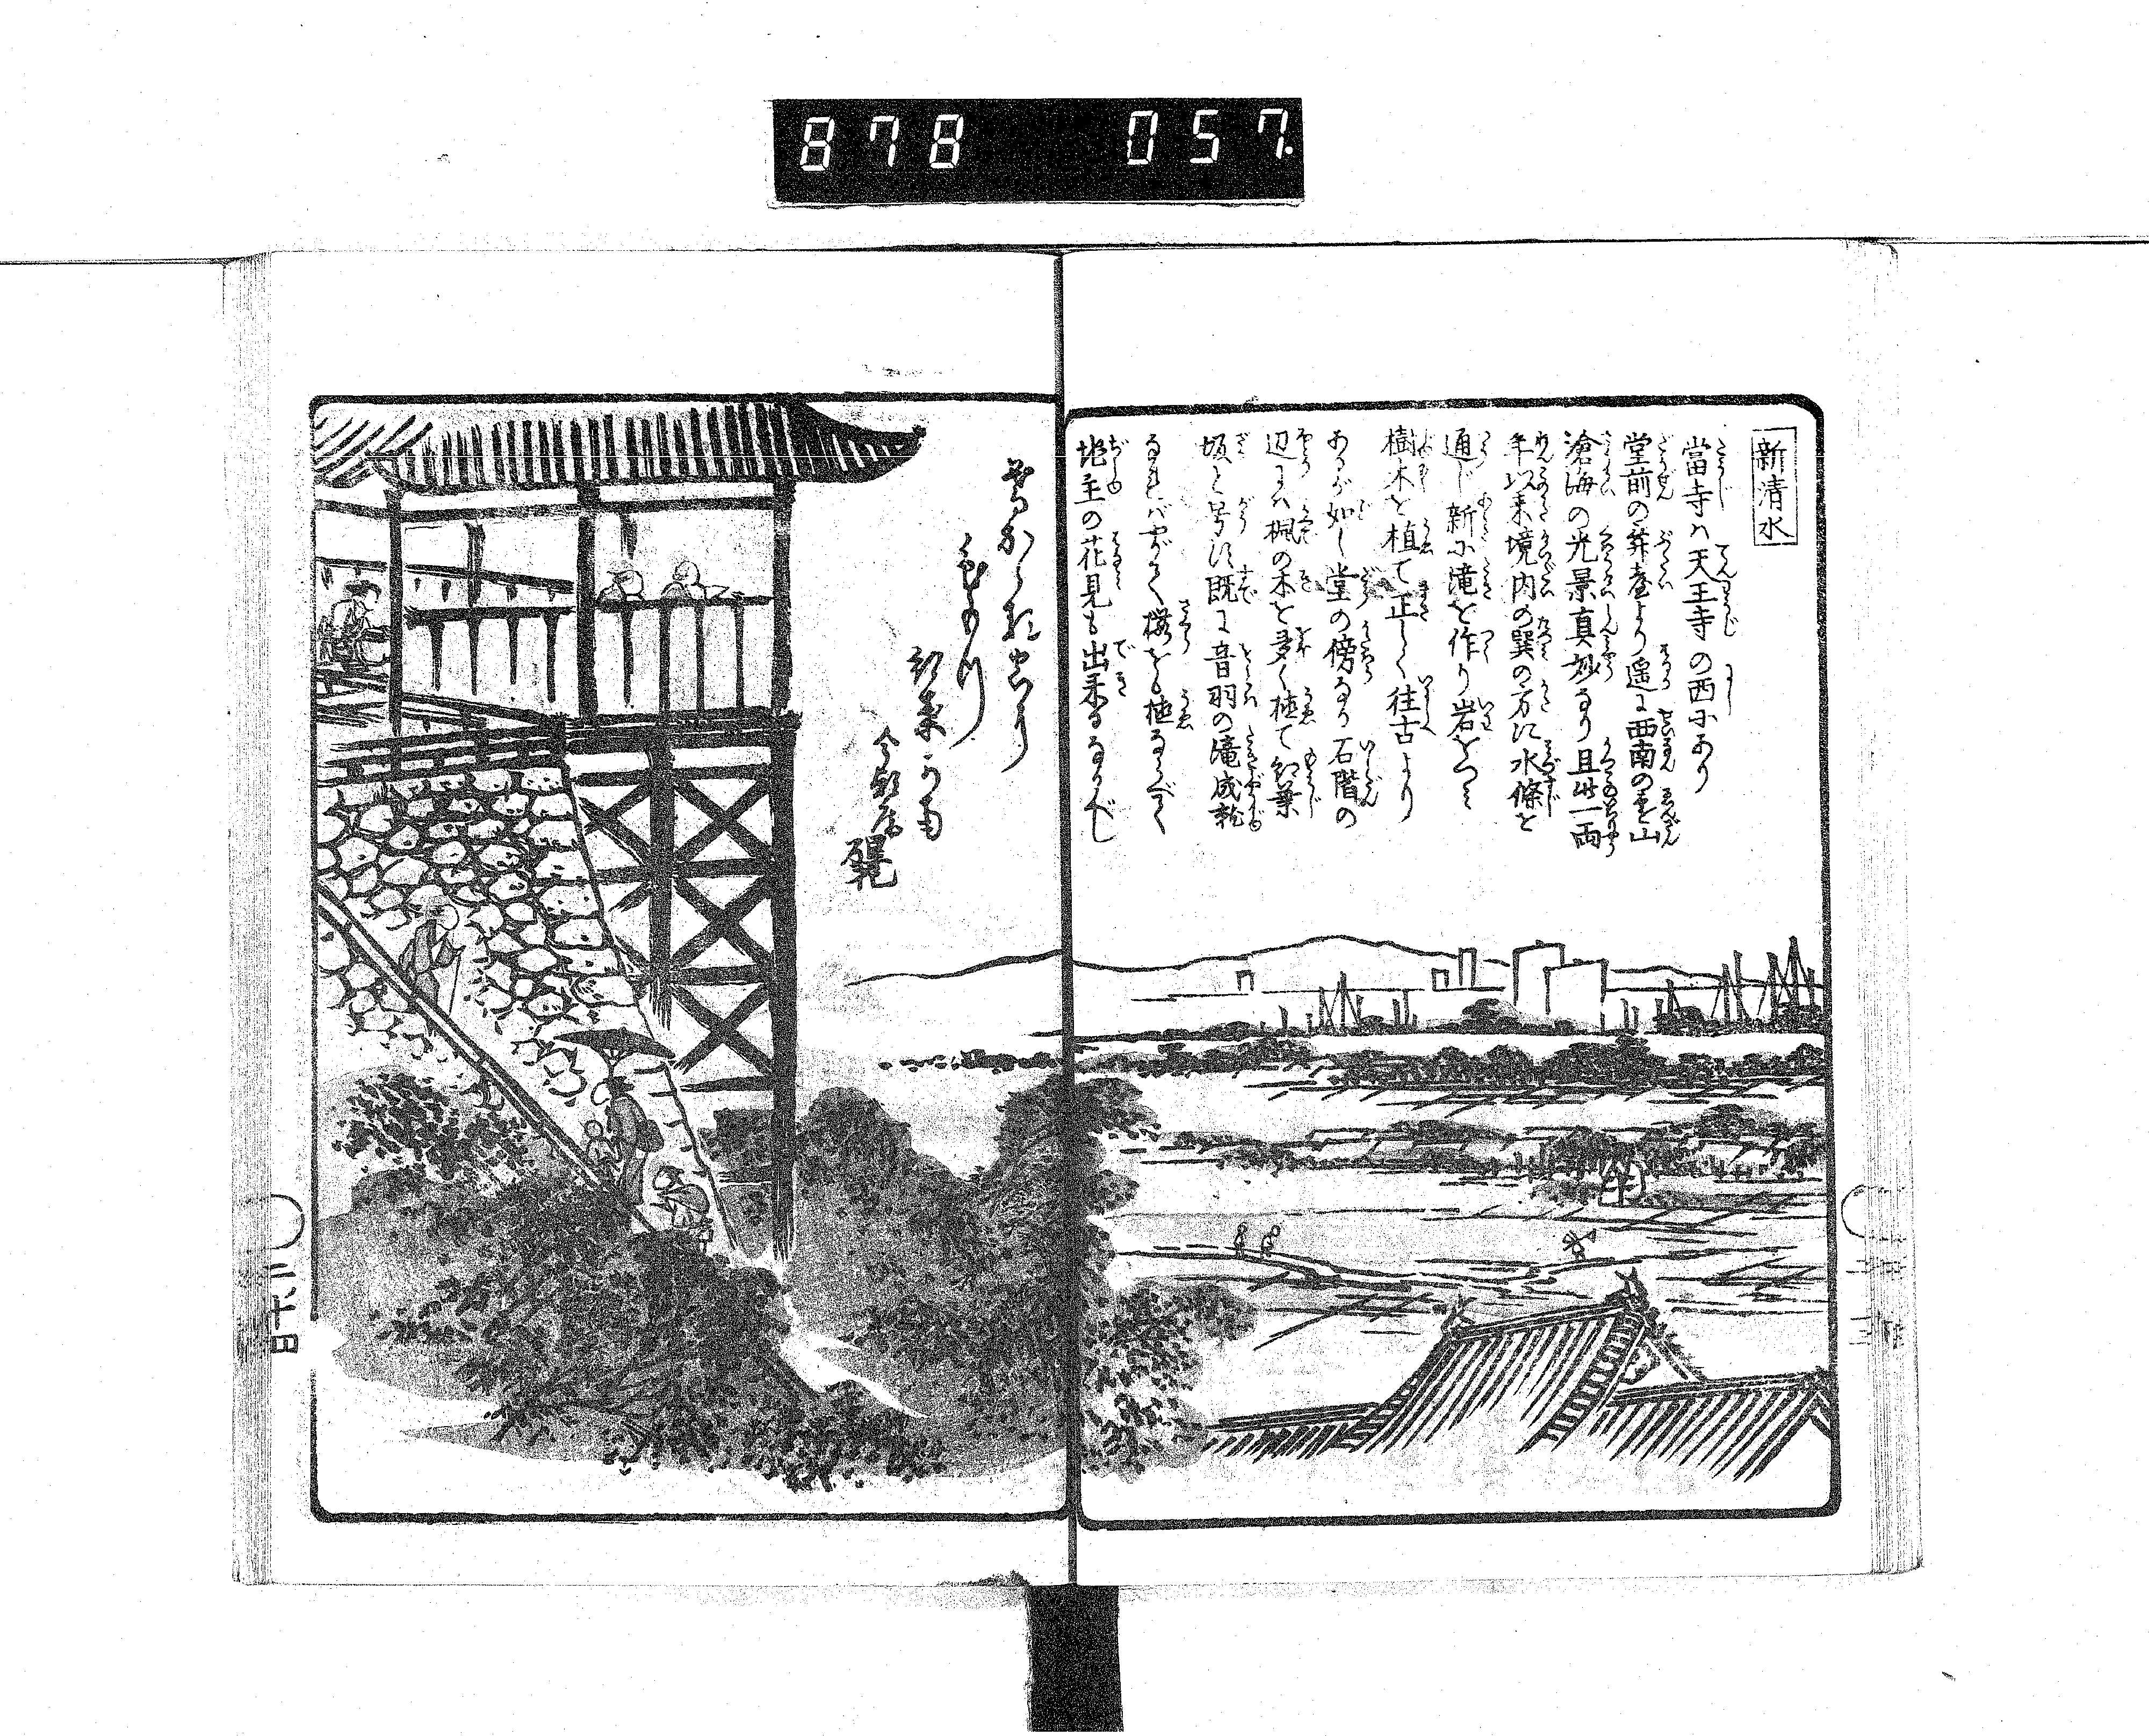 878 057.
新清水
當寺ハ天王寺の西にあり
堂前の舞臺より遥に西南の
滄海の光景真妙なり且此一両
年以来境内の巽の方に水條を
通じ新に滝を作り岩をつミ
樹木を植て正しく往古より
あるが如し堂の傍なる石階の
辺には楓の木を多く植て紅葉
坂と号に既に音羽の滝成就
なれバやがて桜をも植るべく
地主の花見も出来るなるべし